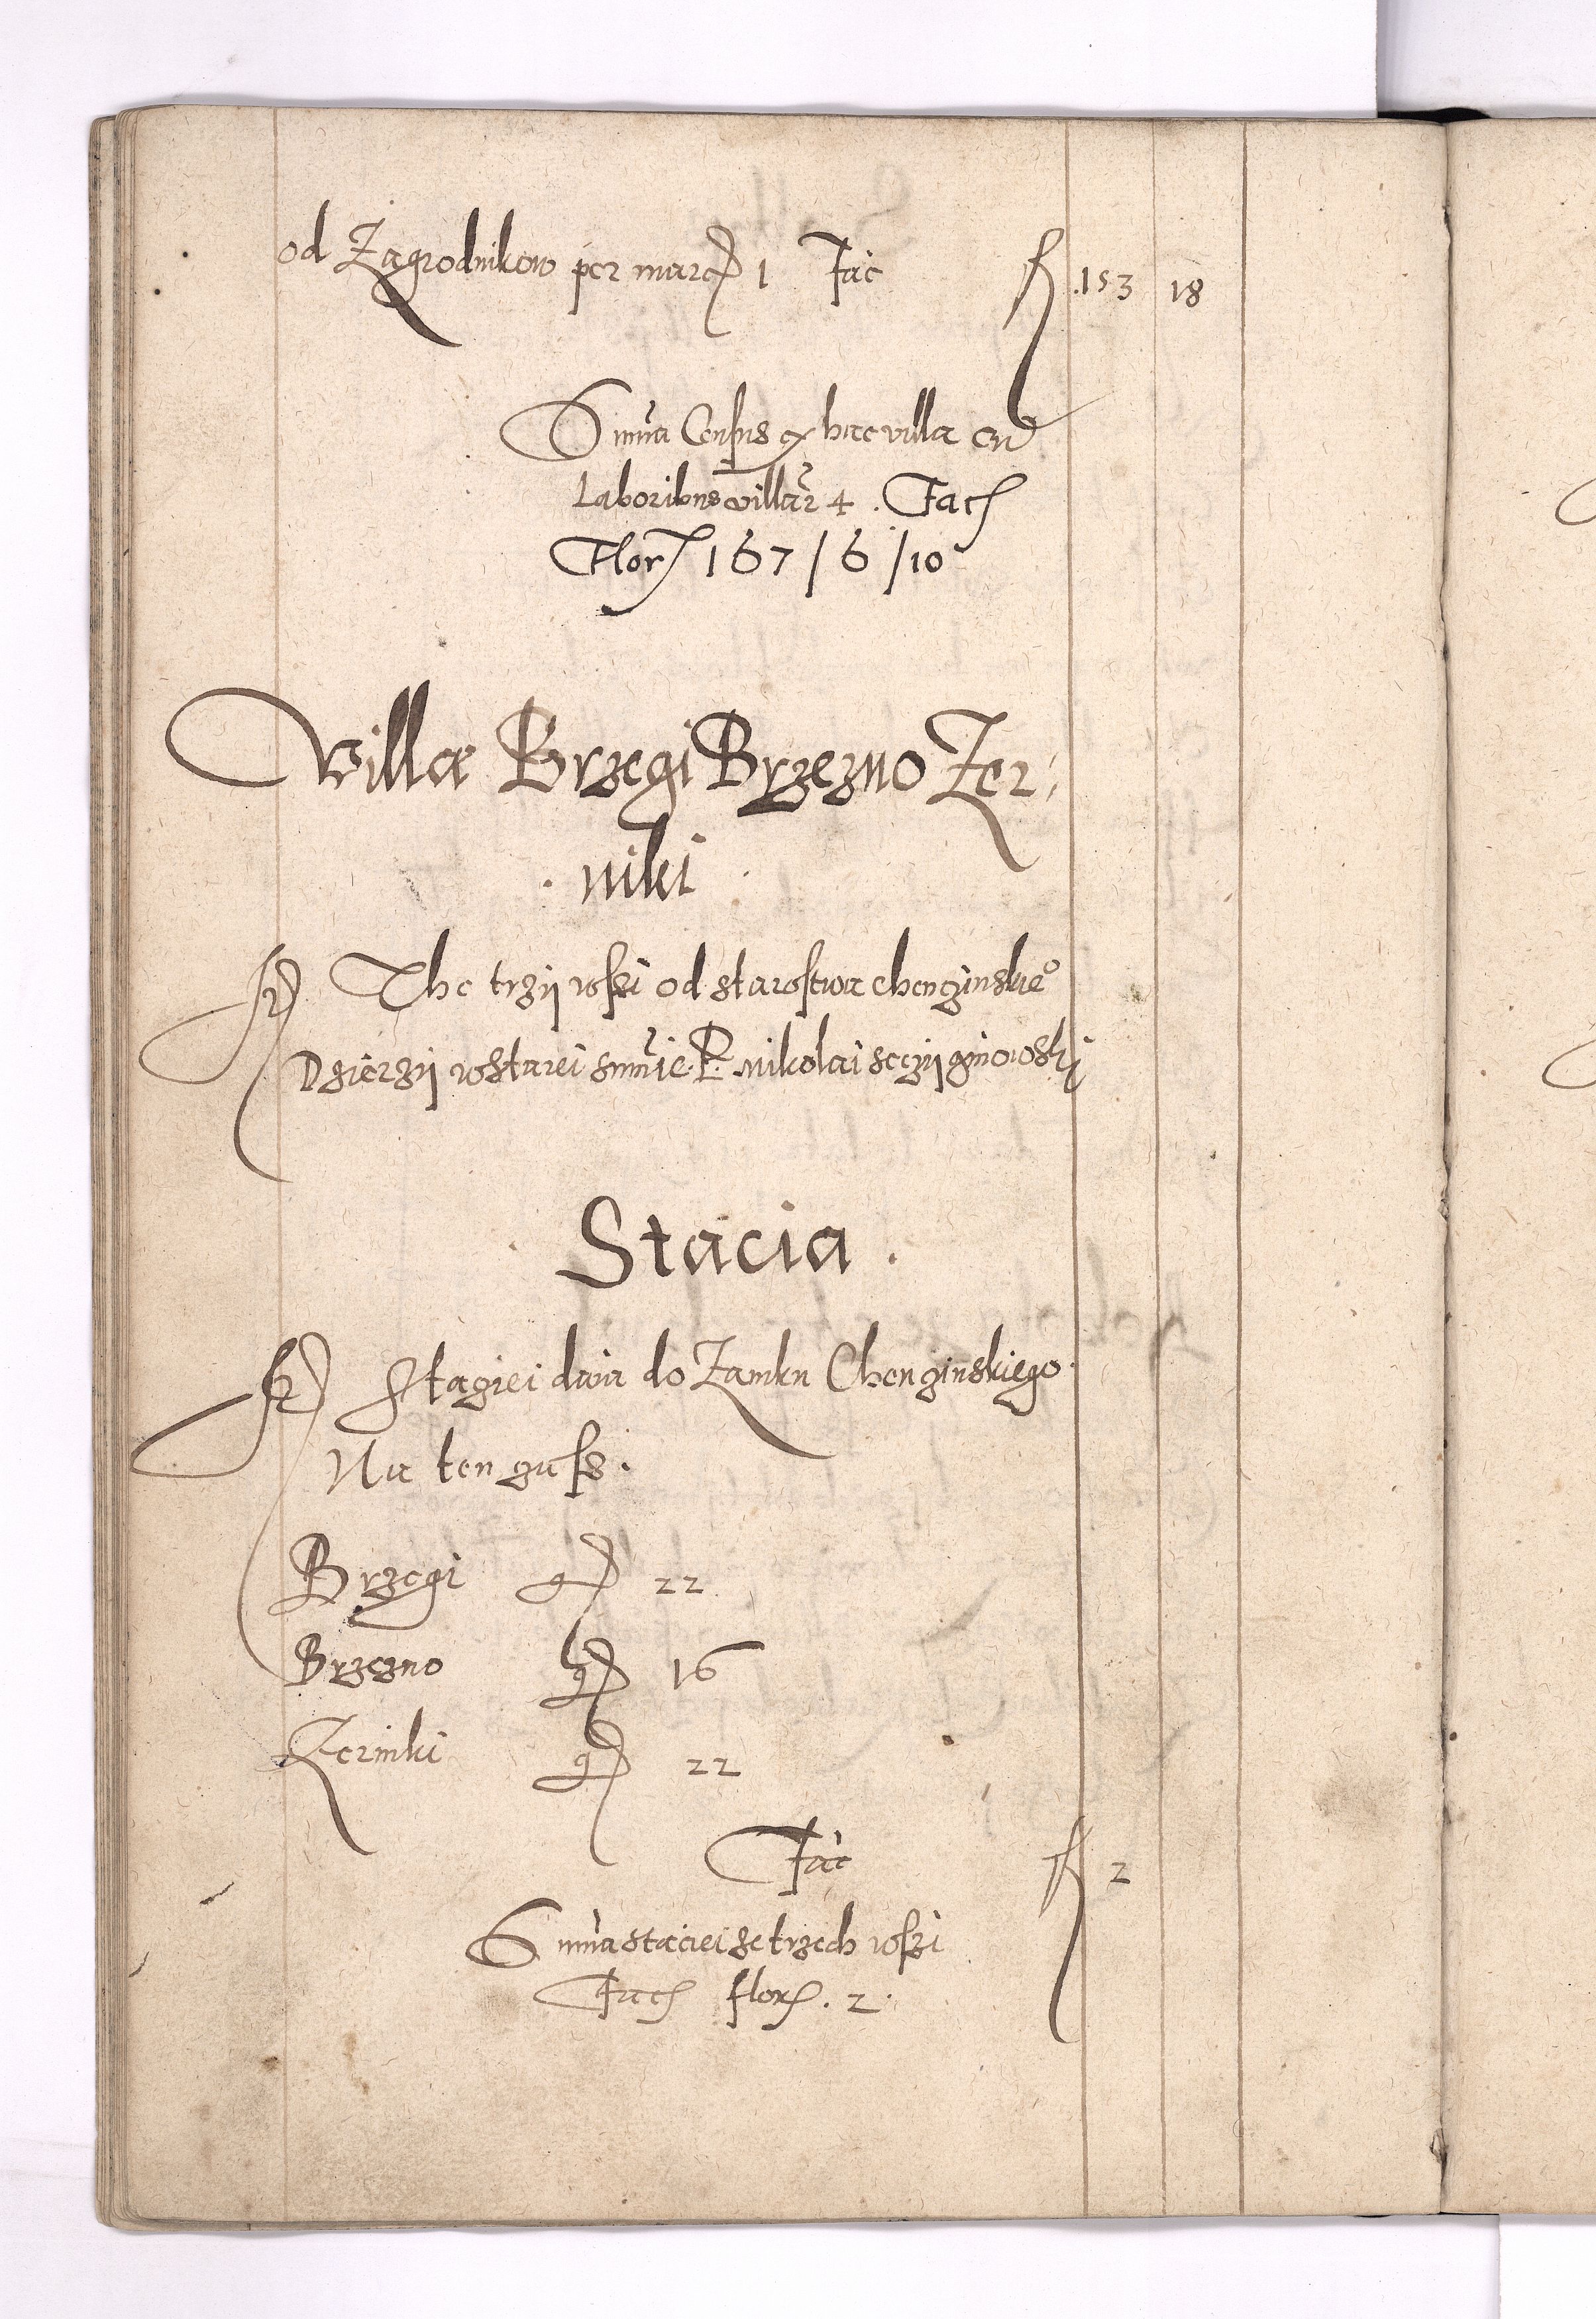 od Zagrodnikow per marc 1 Fac fl 153 18
Summa Census ex hac villa cum
Laboribus villar 4. Fac
Flor 167/6/10
Villæ Brzegi Brzezno Zer,
. niki .
The trzÿ wsszi od starostwa chenczinskie°
Dzierzÿ wstarei summie P. mikolai
Stacia .
Staciei daia do Zamku Chenczinskiego.
Na ten czass.
Brzegi g 22
Brzezno g 16
Zerniki g 22
Fac fl 2
Summa staciei ze trzech wsszi
Fac flor. 2.